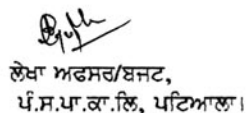 ਲੇਖਾ ਅਫਸਰ/ਬਜਟ,
ਪੰ.ਸ.ਪਾ.ਕਾ.ਲਿ, ਪਟਿਆਲਾ।